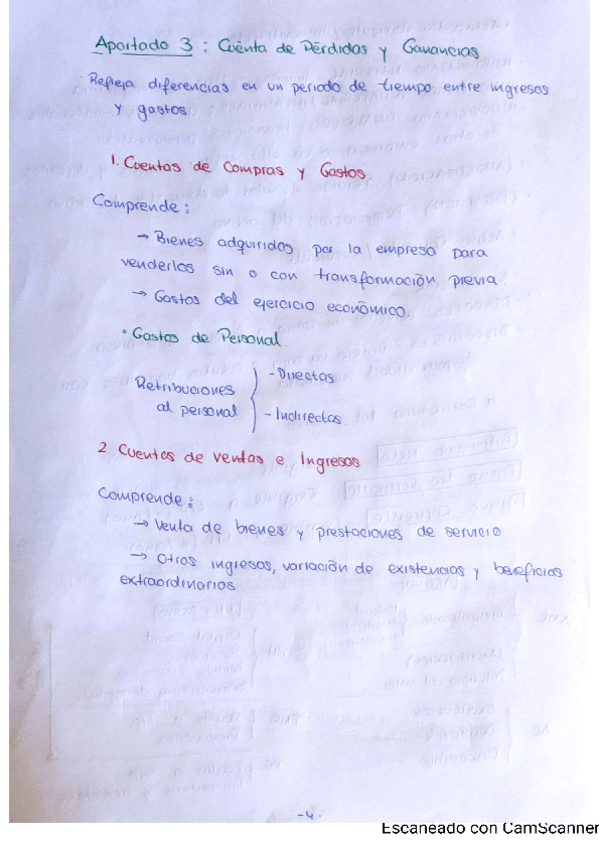 Apartado 3 : Cuenta de Pérdidas y Ganancias
Refleja diferencias en un periodo de tiempo entre ingresos
y gastos
1. Cuentas de Compras y Gastos.
Comprende:
→ Bienes adquiridos por la empresa para
venderlos sin o con transformación previa
→ Gastos del ejercicio económico.
• Gastos de Personal.
Retribuciones
al personal
- Directas
- Indirectas.
2 Cuentas de ventas e Ingresos
Comprende:
→ Venta de bienes y prestaciones de servicio
→ Otros ingresos, variación de existencias y beneficios
extraordinarios.
-4-
Escaneado con CamScanner